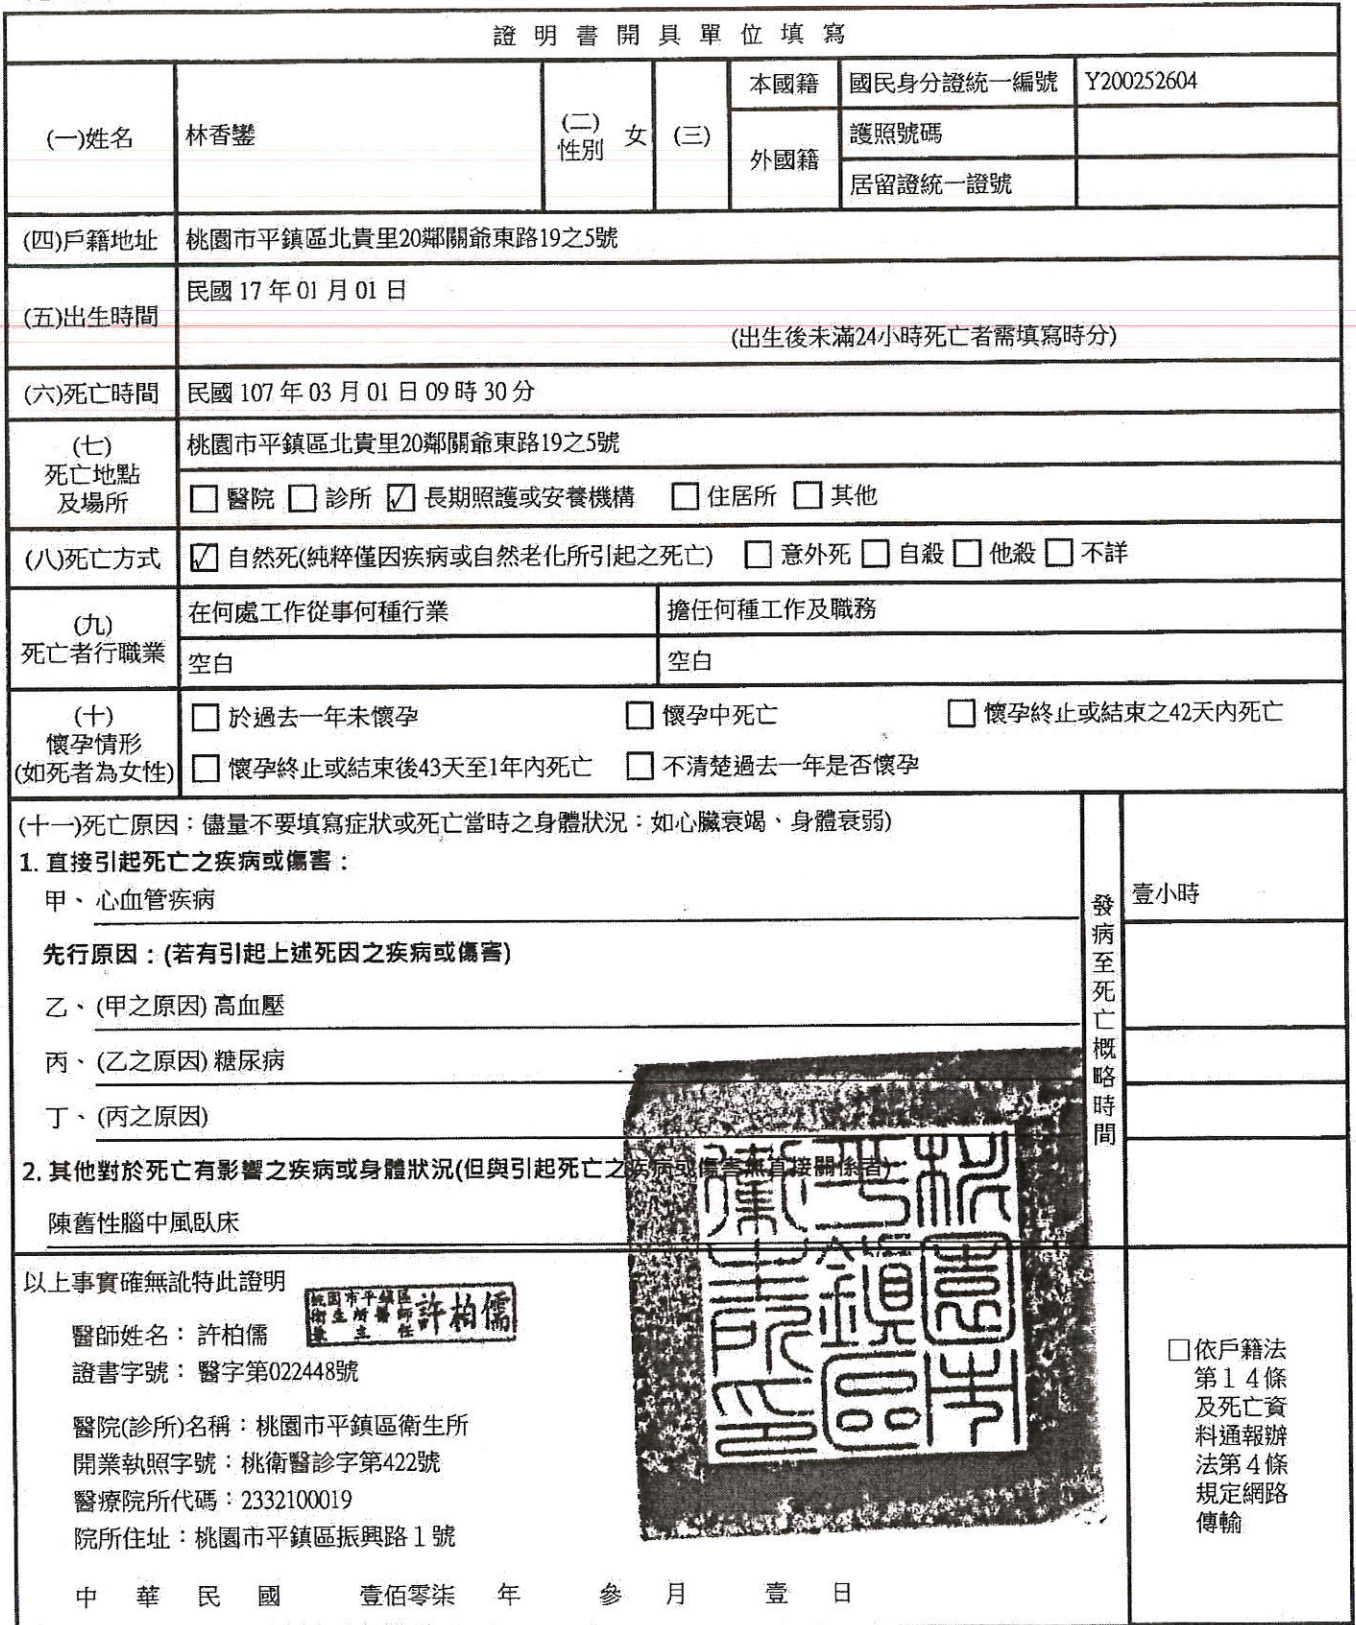 證明書開具單位填寫
(一)姓名
林香鑾
(二)
性別
女
(三)
本國籍
國民身分證統一編號
Y200252604
外國籍
護照號碼
居留證統一證號
(四)戶籍地址
桃園市平鎮區北貴里20鄰關爺東路19之5號
(五)出生時間
民國 17 年 01 月 01 日
(出生後未滿24小時死亡者需填寫時分)
(六)死亡時間
民國 107 年 03 月 01 日 09 時 30 分
(七)
死亡地點
及場所
桃園市平鎮區北貴里20鄰關爺東路19之5號
□ 醫院 □ 診所 ☑ 長期照護或安養機構 □ 住居所 □ 其他
(八)死亡方式
☑ 自然死(純粹僅因疾病或自然老化所引起之死亡) □ 意外死 □ 自殺 □ 他殺 □ 不詳
(九)
死亡者行職業
在何處工作從事何種行業
擔任何種工作及職務
空白
空白
(十)
懷孕情形
(如死者為女性)
□ 於過去一年未懷孕 □ 懷孕中死亡 □ 懷孕終止或結束之42天內死亡
□ 懷孕終止或結束後43天至1年內死亡 □ 不清楚過去一年是否懷孕
(十一)死亡原因：儘量不要填寫症狀或死亡當時之身體狀況：如心臟衰竭、身體衰弱)
1. 直接引起死亡之疾病或傷害：
甲、心血管疾病
發病至死亡概略時間
壹小時
先行原因：(若有引起上述死因之疾病或傷害)
乙、(甲之原因) 高血壓
丙、(乙之原因) 糖尿病
丁、(丙之原因)
2. 其他對於死亡有影響之疾病或身體狀況(但與引起死亡之疾病或傷害無直接關係者)
陳舊性腦中風臥床
桃園市
平鎮區
衛生所印
以上事實確無訛特此證明
桃園市平鎮區
衛生所醫師
兼主任
許柏儒
醫師姓名：許柏儒
證書字號：醫字第022448號
醫院(診所)名稱：桃園市平鎮區衛生所
開業執照字號：桃衛醫診字第422號
醫療院所代碼：2332100019
院所住址：桃園市平鎮區振興路１號
□依戶籍法
第１４條
及死亡資
料通報辦
法第４條
規定網路
傳輸
中華民國 壹佰零柒 年 參 月 壹 日